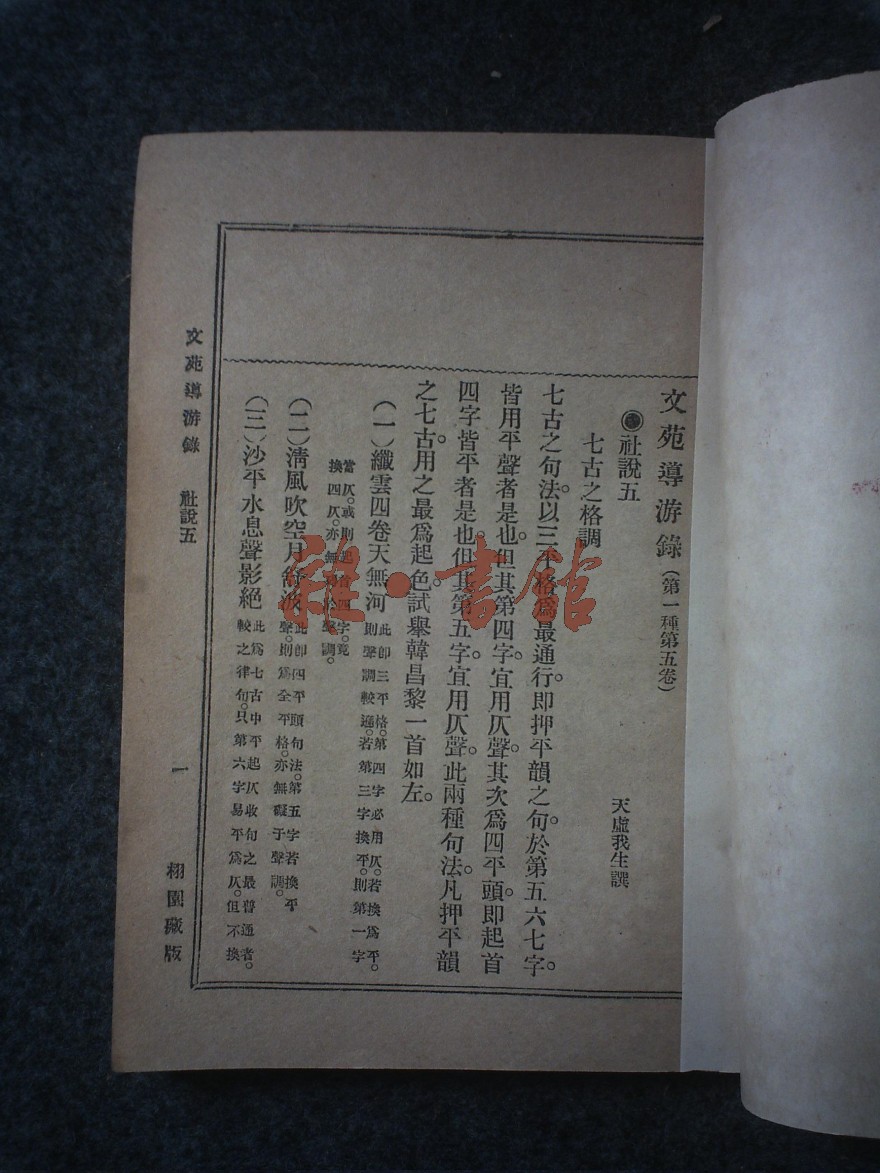 文苑導游錄（第一種第五卷）
社說五
天虛我生譔
七古之格調
七古之句法。以三平格爲最通行。即押平韻之句。於第五六七字。
皆用平聲者是也。但其第四字。宜用仄聲。其次爲四平頭。即起首
四字皆平者是也。但其第五字。宜用仄聲。此兩種句法。凡押平韻
之七古。用之最爲起色。試舉韓昌黎一首如左。
（一）纖雲四卷天無河 此即三平格。第四字必用仄。若換爲平。
則聲調較遜。若第三字換平。則第一字
當仄。或則起首四字。竟
換四仄。亦無於聲調。
（二）清風吹空月舒波 此即四平頭句法。第五字若換平
聲。則爲全平格。亦無礙于聲調。
（三）沙平水息聲影絕 此爲七古中平起仄收句之最普通者。
較之律句。只第六字易平爲仄。但不換
文苑導游錄 社說五 一 栩園藏版
雜·書館